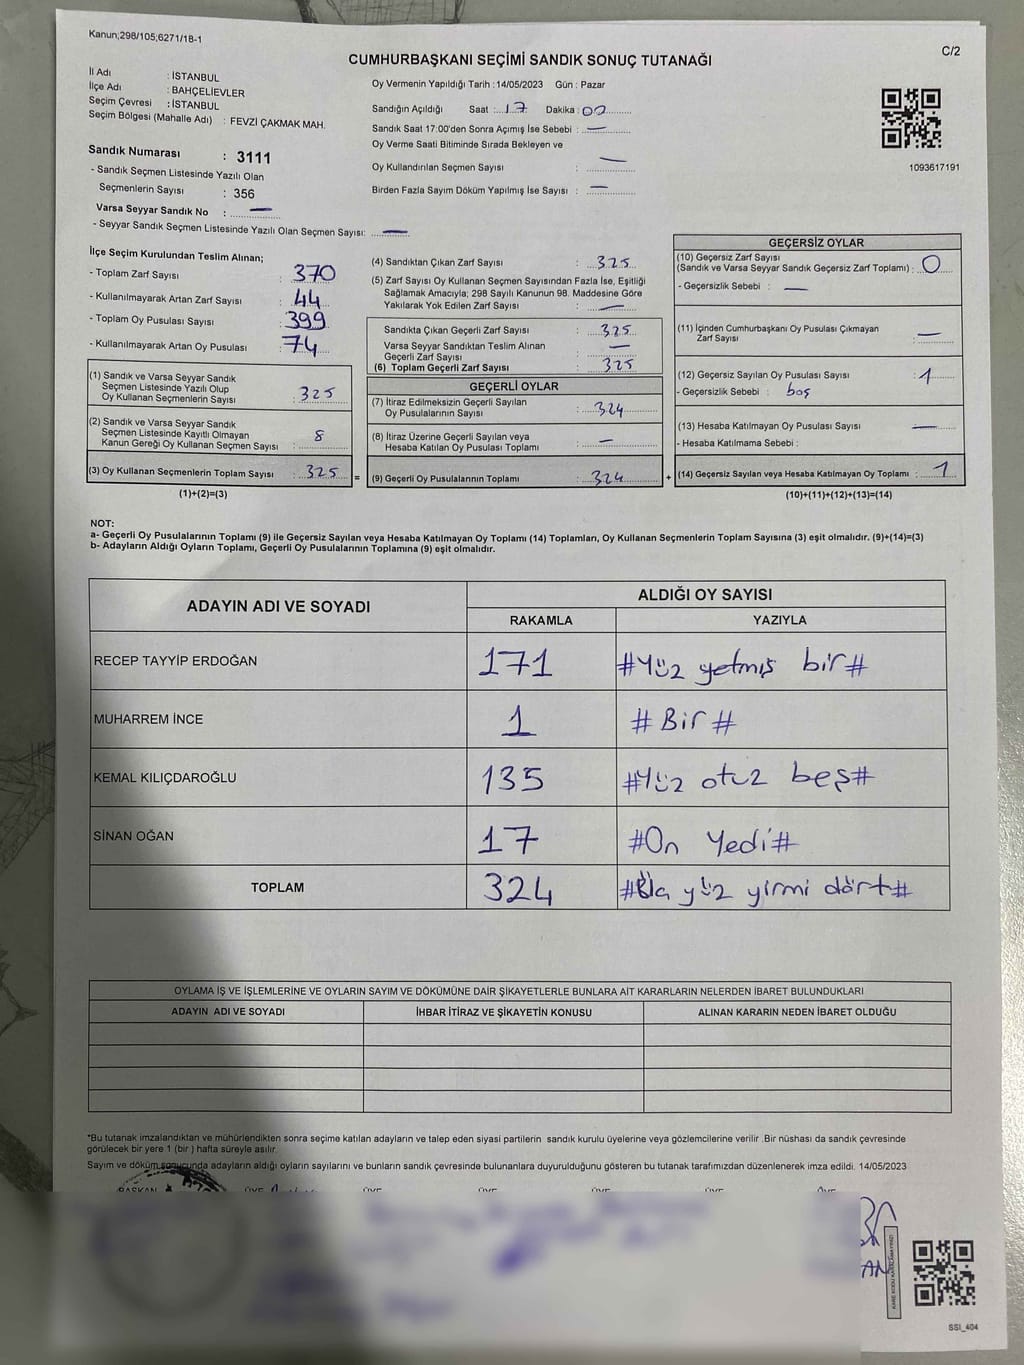 Kanun;298/105;6271/18-1
C/2
CUMHURBAŞKANI SEÇİMİ SANDIK SONUÇ TUTANAĞI
İl Adı : İSTANBUL
İlçe Adı : BAHÇELİEVLER
Seçim Çevresi : İSTANBUL
Seçim Bölgesi (Mahalle Adı) : FEVZİ ÇAKMAK MAH.
Sandık Numarası : 3111
- Sandık Seçmen Listesinde Yazılı Olan
Seçmenlerin Sayısı : 356
Varsa Seyyar Sandık No : —
- Seyyar Sandık Seçmen Listesinde Yazılı Olan Seçmen Sayısı: —
Oy Vermenin Yapıldığı Tarih : 14/05/2023 Gün : Pazar
Sandığın Açıldığı Saat : 17 Dakika : 00
Sandık Saat 17:00'den Sonra Açımış İse Sebebi : —
Oy Verme Saati Bitiminde Sırada Bekleyen ve
Oy Kullandırılan Seçmen Sayısı : —
Birden Fazla Sayım Döküm Yapılmış İse Sayısı : —
1093617191
İlçe Seçim Kurulundan Teslim Alınan;
- Toplam Zarf Sayısı : 370
- Kullanılmayarak Artan Zarf Sayısı : 44
- Toplam Oy Pusulası Sayısı : 399
- Kullanılmayarak Artan Oy Pusulası : 74
(1) Sandık ve Varsa Seyyar Sandık
Seçmen Listesinde Yazılı Olup
Oy Kullanan Seçmenlerin Sayısı : 325
(2) Sandık ve Varsa Seyyar Sandık
Seçmen Listesinde Kayıtlı Olmayan
Kanun Gereği Oy Kullanan Seçmen Sayısı : 8
(3) Oy Kullanan Seçmenlerin Toplam Sayısı : 325 =
(1)+(2)=(3)
(4) Sandıktan Çıkan Zarf Sayısı : 325
(5) Zarf Sayısı Oy Kullanan Seçmen Sayısından Fazla İse, Eşitliği
Sağlamak Amacıyla; 298 Sayılı Kanunun 98. Maddesine Göre
Yakılarak Yok Edilen Zarf Sayısı : —
Sandıkta Çıkan Geçerli Zarf Sayısı : 325
Varsa Seyyar Sandıktan Teslim Alınan
Geçerli Zarf Sayısı : —
(6) Toplam Geçerli Zarf Sayısı : 325
GEÇERLİ OYLAR
(7) İtiraz Edilmeksizin Geçerli Sayılan
Oy Pusulalarının Sayısı : 324
(8) İtiraz Üzerine Geçerli Sayılan veya
Hesaba Katılan Oy Pusulası Toplamı : —
(9) Geçerli Oy Pusulalarının Toplamı : 324 +
GEÇERSİZ OYLAR
(10) Geçersiz Zarf Sayısı
(Sandık ve Varsa Seyyar Sandık Geçersiz Zarf Toplamı) : 0
- Geçersizlik Sebebi : —
(11) İçinden Cumhurbaşkanı Oy Pusulası Çıkmayan
Zarf Sayısı : —
(12) Geçersiz Sayılan Oy Pusulası Sayısı : 1
- Geçersizlik Sebebi : boş
(13) Hesaba Katılmayan Oy Pusulası Sayısı : —
- Hesaba Katılmama Sebebi :
(14) Geçersiz Sayılan veya Hesaba Katılmayan Oy Toplamı : 1
(10)+(11)+(12)+(13)=(14)
NOT:
a- Geçerli Oy Pusulalarının Toplamı (9) ile Geçersiz Sayılan veya Hesaba Katılmayan Oy Toplamı (14) Toplamları, Oy Kullanan Seçmenlerin Toplam Sayısına (3) eşit olmalıdır. (9)+(14)=(3)
b- Adayların Aldığı Oyların Toplamı, Geçerli Oy Pusulalarının Toplamına (9) eşit olmalıdır.
ADAYIN ADI VE SOYADI ALDIĞI OY SAYISI
RAKAMLA YAZIYLA
RECEP TAYYİP ERDOĞAN 171 #Yüz yetmiş bir#
MUHARREM İNCE 1 #Bir#
KEMAL KILIÇDAROĞLU 135 #Yüz otuz beş#
SİNAN OĞAN 17 #On Yedi#
TOPLAM 324 yüz yirmi dört#
OYLAMA İŞ VE İŞLEMLERİNE VE OYLARIN SAYIM VE DÖKÜMÜNE DAİR ŞİKAYETLERLE BUNLARA AİT KARARLARIN NELERDEN İBARET BULUNDUKLARI
ADAYIN ADI VE SOYADI İHBAR İTİRAZ VE ŞİKAYETİN KONUSU ALINAN KARARIN NEDEN İBARET OLDUĞU
*Bu tutanak imzalandıktan ve mühürlendikten sonra seçime katılan adayların ve talep eden siyasi partilerin sandık kurulu üyelerine veya gözlemcilerine verilir .Bir nüshası da sandık çevresinde
görülecek bir yere 1 (bir ) hafta süreyle asılır.
Sayım ve döküm sonucunda adayların aldığı oyların sayılarını ve bunların sandık çevresinde bulunanlara duyurulduğunu gösteren bu tutanak tarafımızdan düzenlenerek imza edildi. 14/05/2023
BAŞKAN ÜYE ÜYE ÜYE ÜYE ÜYE ÜYE
SSI_404